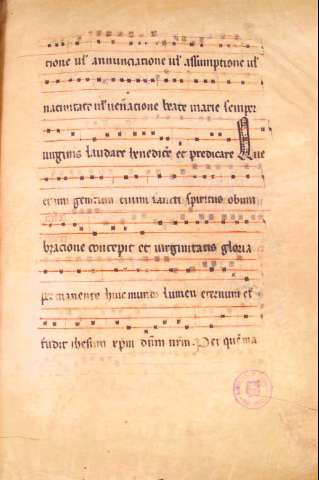 cione ul' annunciatione ul' assumptione ul'
nativitate ul' veñatione beate marie semper
virginis laudare benedicẽ et predicare Que
et unigenitum tuum sancti spiritus obum
bracione concepit et virginitatis gloria
permanente huic mundo lumen eternum ef
fudit ihesum xpm dñm nrm. Per quẽ ma